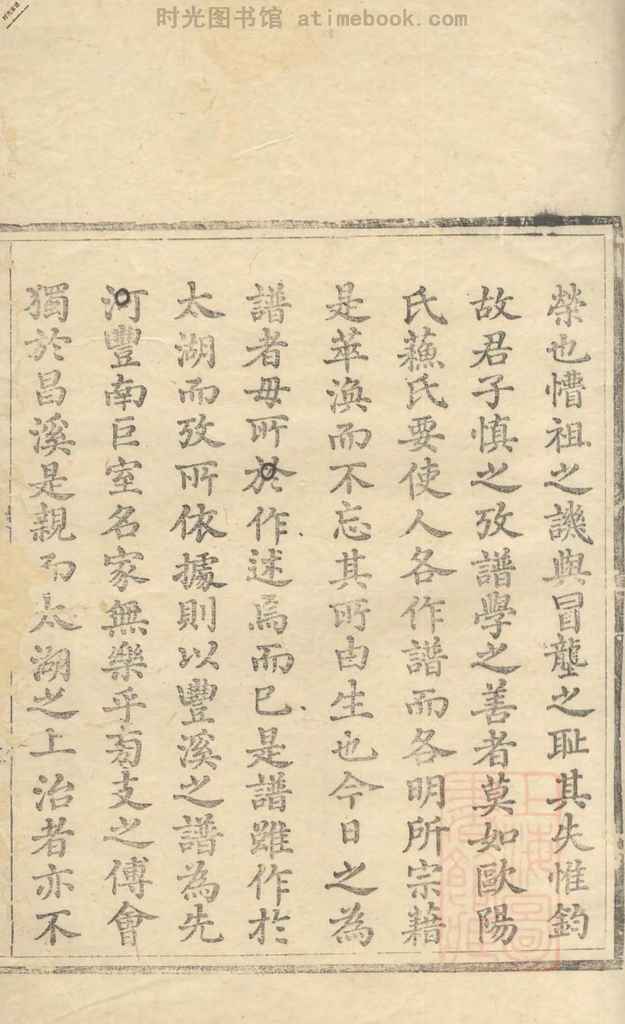 时光图书馆 atimebook.com
榮也慒祖之譏與冒壟之恥其失惟鈞
故君子慎之攷譜學之善者莫如歐陽
氏蘓氏要使人各作譜而各明所宗藉
是萃渙而不忘其所由生也今日之為
譜者毋所於作述焉而已是譜雖作於
太湖而攷所依據則以豐溪之譜為先
河豐南巨室名家無樂乎㫄支之傅會
獨於昌溪是親而太湖之上治者亦不